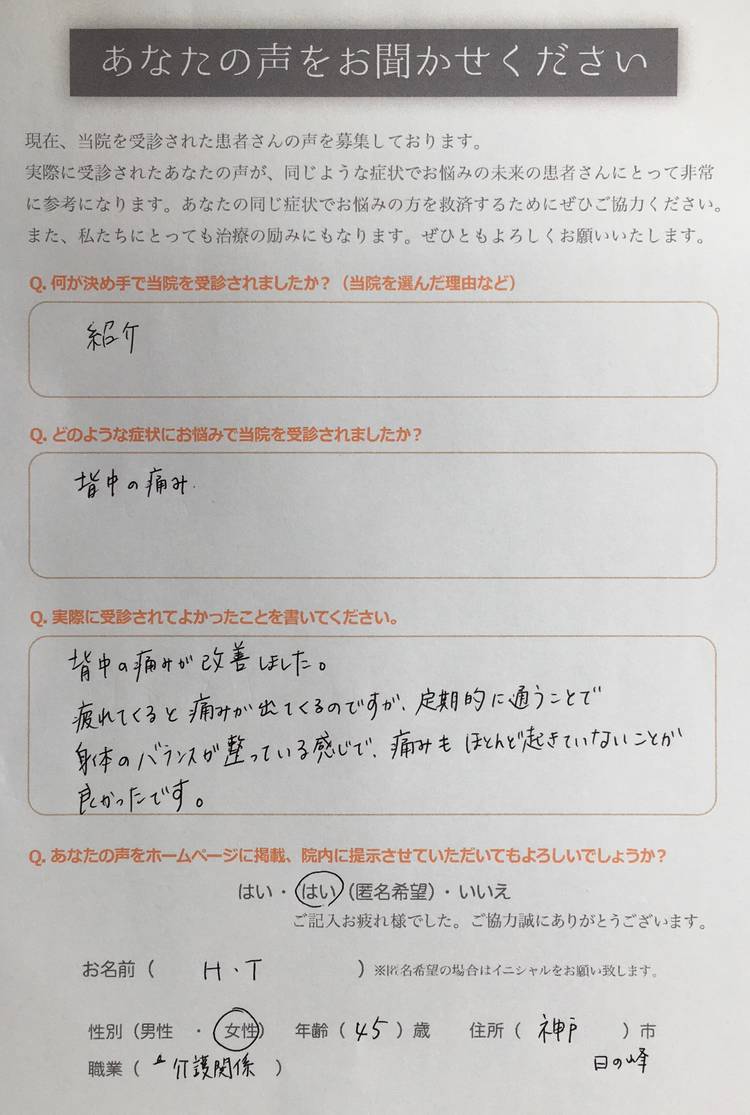 あなたの声をお聞かせください
現在、当院を受診された患者さんの声を募集しております。
実際に受診されたあなたの声が、同じような症状でお悩みの未来の患者さんにとって非常
に参考になります。あなたの同じ症状でお悩みの方を救済するためにぜひご協力ください。
また、私たちにとっても治療の励みにもなります。ぜひともよろしくお願いいたします。
Q. 何が決め手で当院を受診されましたか？（当院を選んだ理由など）
紹介
Q. どのような症状にお悩みで当院を受診されましたか？
背中の痛み.
Q. 実際に受診されてよかったことを書いてください。
背中の痛みが改善しました。
疲れてくると痛みが出てくるのですが、定期的に通うことで
身体のバランスが整っている感じで、痛みもほとんど起きていないことが
良かったです。
Q. あなたの声をホームページに掲載、院内に提示させていただいてもよろしいでしょうか？
はい・はい（匿名希望）・いいえ
ご記入お疲れ様でした。ご協力誠にありがとうございます。
お名前（ H・T ）※匿名希望の場合はイニシャルをお願い致します。
性別（男性 ・ 女性） 年齢（ 45 ）歳 住所（ 神戸 ）市
職業（ 介護関係 ） 日の峰